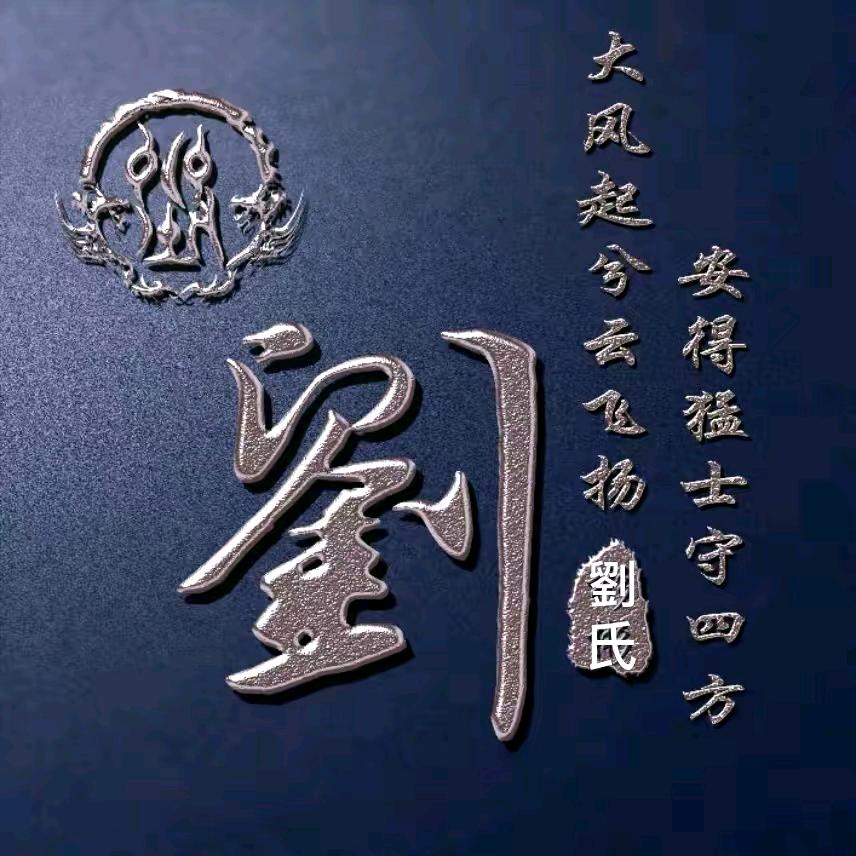 劉
大风起兮云飞扬
安得猛士守四方
劉氏